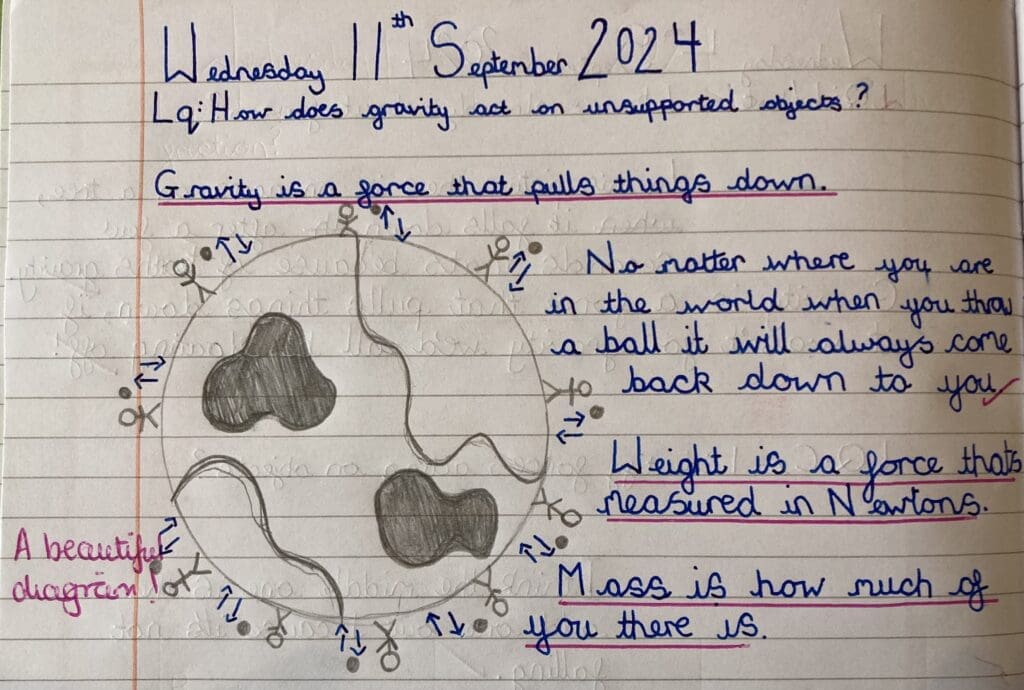 Wednesday 11th September 2024
Lq: How does gravity act on unsupported objects?
Gravity is a force that pulls things down.
No matter where you are
in the world when you throw
a ball it will always come
back down to you
Weight is a force thats
measured in Newtons.
A beautiful
diagram!
Mass is how much of
you there is.